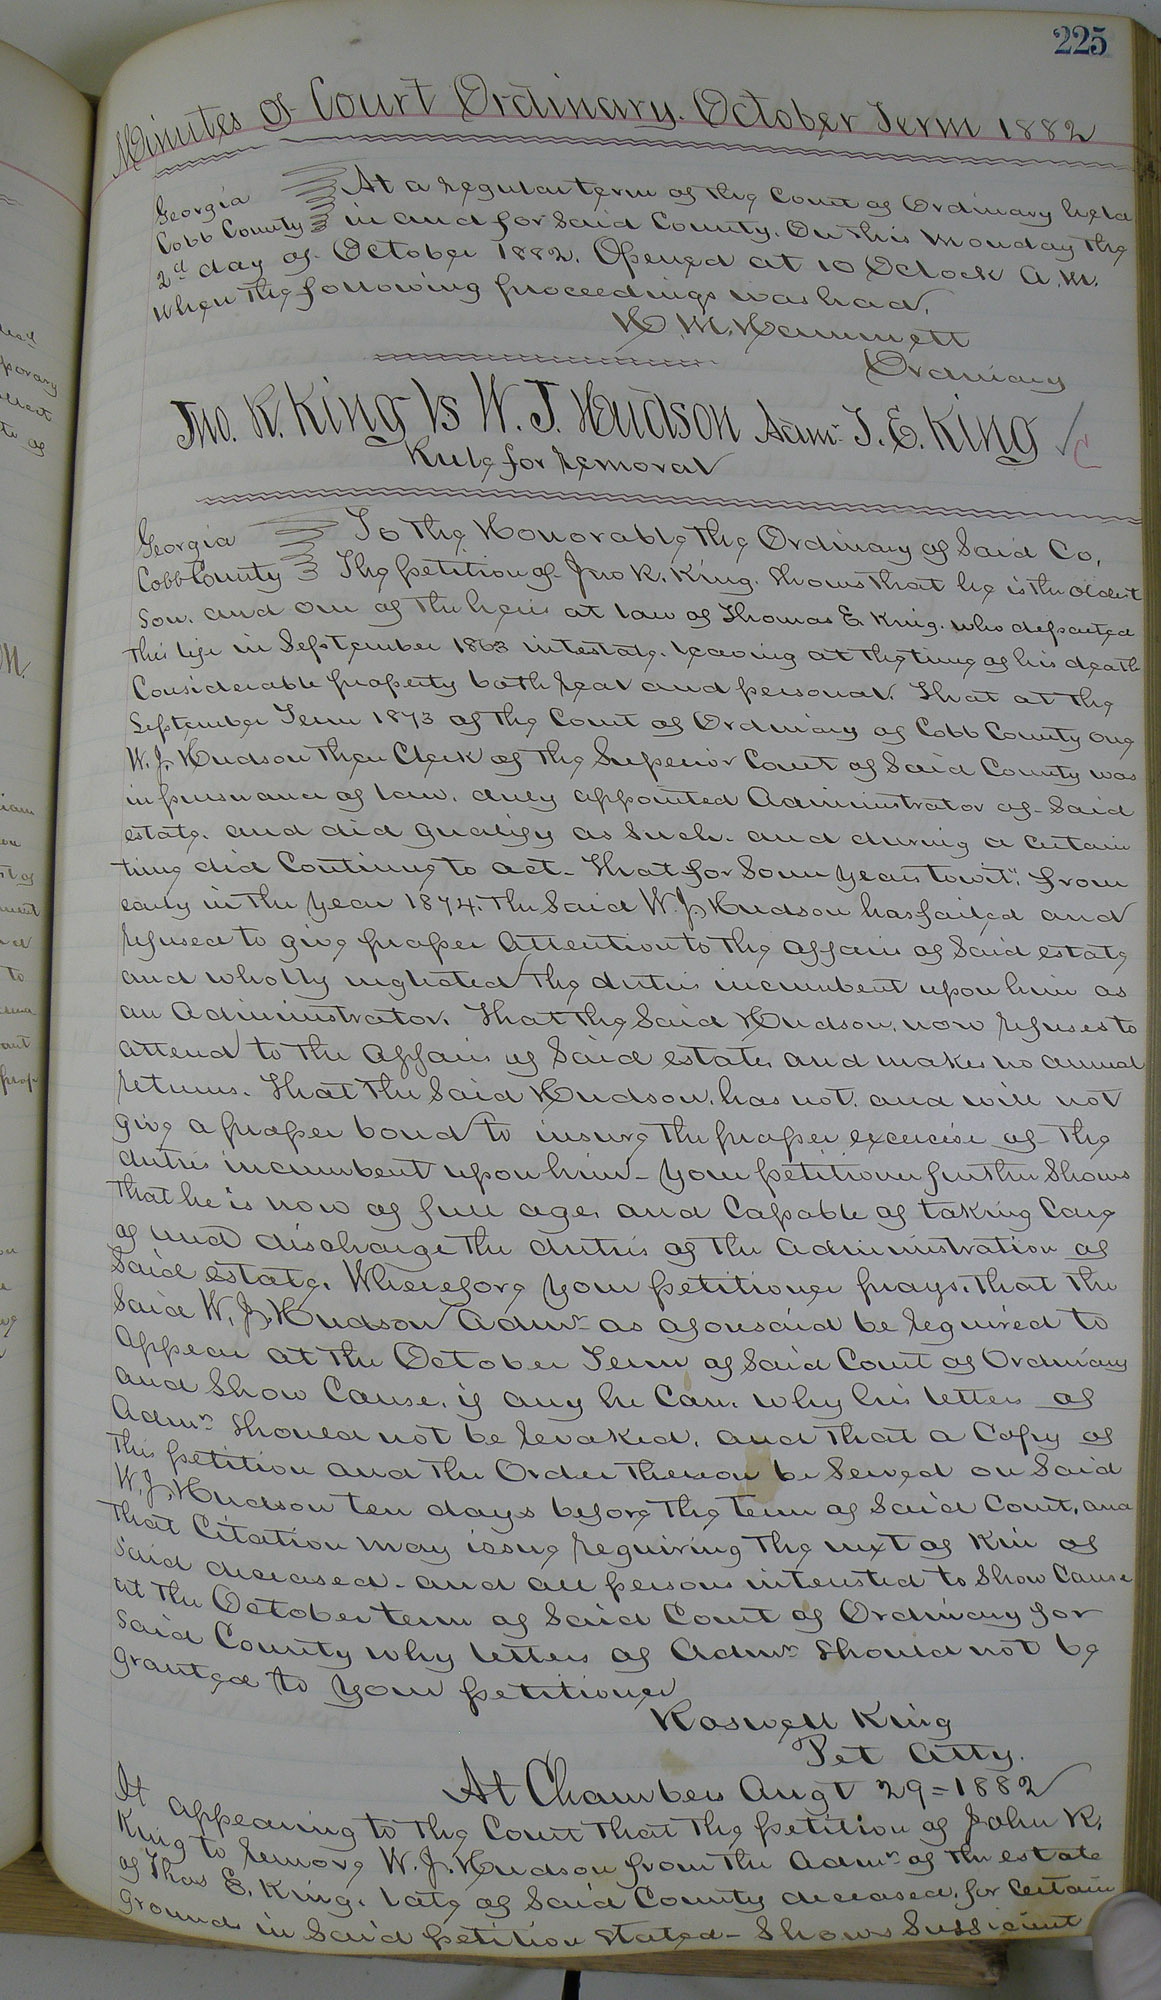 225
Minutes of Court Ordinary. October Term 1882
Georgia At a regular term of the Court of Ordinary held
Cobb County in and for said County. On this Monday the
2d day of October 1882. Opened at 10 Oclock A.M.
when the following proceedings was had.
H. M. Hammett
Ordinary
Jno. R. King Vs W. J. Hudson Admr. T. E. King
Rule for removal
Georgia To the Honorable the Ordinary of Said Co,
Cobb County The petition of Jno R. King. Shows that he is the oldest
Son. and one of the heirs at law of Thomas E. King. who departed
this life in September 1863 intestate. leaving at the time of his death
Considerable property both real and personal. That at the
September Term 1873 of the Court of Ordinary of Cobb County one
W. J. Hudson then Clerk of the Superior Court of Said County was
in pursuance of law. duly appointed Administrator of Said
estate. and did qualify as Such. and during a certain
time did Continue to act. That for Some years towit, from
early in the year 1874. The Said W. J. Hudson has failed and
refused to give proper attention to the affairs of Said estate
and wholly neglected the duties incumbent upon him as
an Administrator. That the Said Hudson, now refuses to
attend to the affairs of Said estate, and makes no annual
returns. That the Said Hudson. has not. and will not
give a proper bond to insure the proper excercise of the
duties incumbent upon him - Your petitioner further Shows
that he is now of full age, and Capable of taking Care
of and discharge the duties of the Administration of
Said estate. Wherefore your petitioner prays. that the
Said W. J. Hudson Admr. as aforesaid be required to
appear at the October Term of Said Court of Ordinary
and Show Cause, if any he Can. why his letters of
Admn. should not be revoked. and that a Copy of
this petition and the Order thereon be Served on Said
W. J. Hudson ten days before the term of Said Court, and
that Citation may issue requiring the next of Kin of
said deceased. and all persons interested to Show Cause
at the October term of Said Court of Ordinary for
said County why letters of Admn. should not be
granted to your petitioner
Roswell King
Pet Atty.
At Chambers Augt 29=1882
It appearing to the Court that the petition of John R.
King to remove W. J. Hudson from the Admn. of the estate
of Thos E. King. late of Said County deceased, for Certain
grounds in Said petition stated - Shows Sufficient